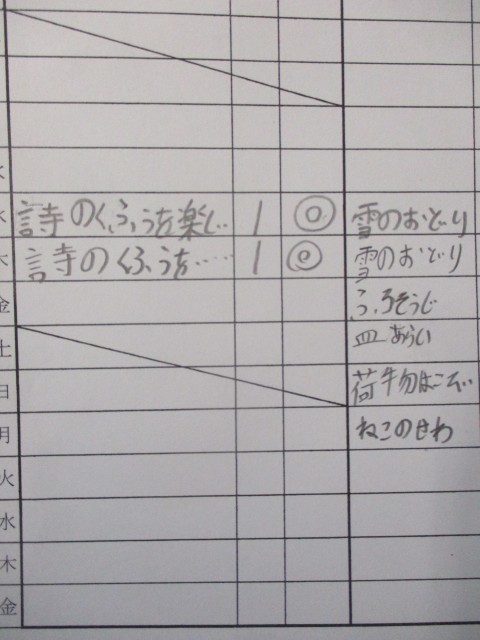 水
詩のくふうを楽し‥ 1 ◎ 雪のおどり
木 詩のくふうを‥‥‥ 1 ◎ 雪のおどり
金 ふろそうじ
土 皿あらい
日 荷物はこび
月 ねこのせわ
火
水
木
金